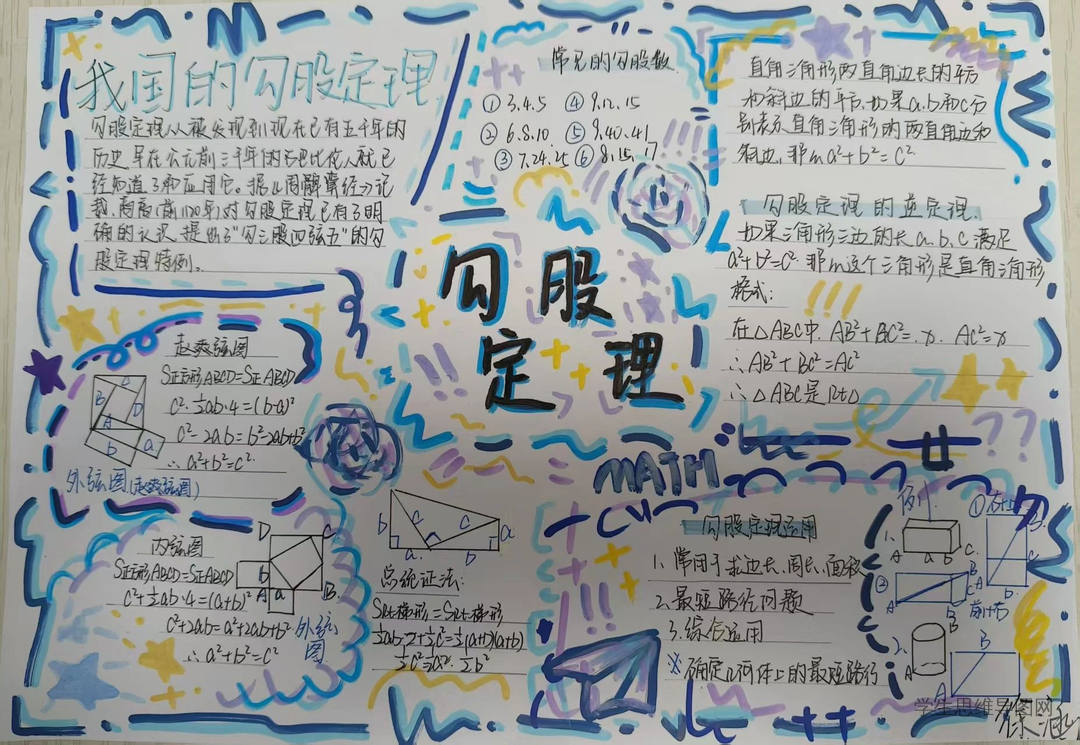 我国的勾股定理
勾股定理从被发现到现在已有五千年的
历史早在公元前三千年的古巴比伦人就已
经知道了和应用它。据《周髀算经》记
载,商高(前1120年)对勾股定理已有了明
确的认识,提出了“勾三股四弦五”的勾
股定理特例。
常见的勾股数
① 3.4.5 ④ 9.12.15
② 6.8.10 ⑤ 9.40.41
③ 7.24.25 ⑥ 8.15.17
直角三角形两直角边长的平方
和斜边的平方.如果a.b和c分
别表示直角三角形的两直角边和
斜边,那么a²+b²=c²
勾股定理的逆定理.
如果三角形三边的长a.b.c满足
a²+b²=c² 那么这个三角形是直角三角形
格式:
在△ABC中. AB²+BC²=.x. AC²=x
∴AB²+BC²=AC²
∴△ABC是Rt△
勾股
定理
MATH
赵爽弦图
S正方形ABCD=S正ABCD
c²-½ab·4=(b-a)²
c²-2ab=b²-2ab+b²
∴a²+b²=c²
外弦图(赵爽弦图)
A
B
D
b
a
内弦图
S正方形ABCD=S正ABCD
c²+½ab·4=(a+b)²
c²+2ab=a²+2ab+b²
∴a²+b²=c²
外弦
图
D
C
b
A
a
B.
b
c
c
a
a
b
总统证法:
S梯形=S梯形
½ab·2+½c²=½(a+b)(a+b)
½c²=½a²·½b²
勾股定理运用
1.常用于求边长.周长.面积
2.最短路径问题
3.综合运用
※确定几何体上的最短路径
例
①右+上
1.
A
a
b
C.
②
B
C
A
前+右
C
b
2.
B
A
B
A
学生思维导图网